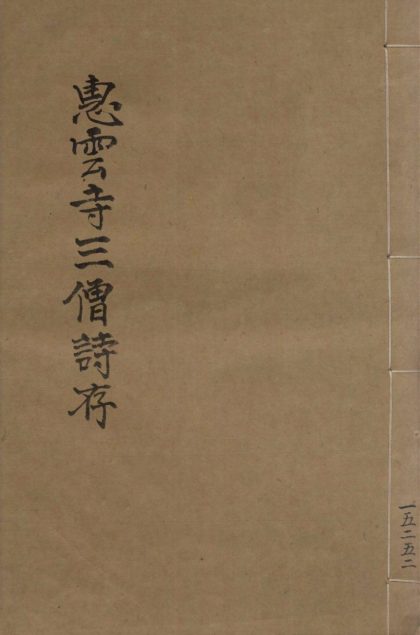 惠雲寺三僧詩存
一五二五二